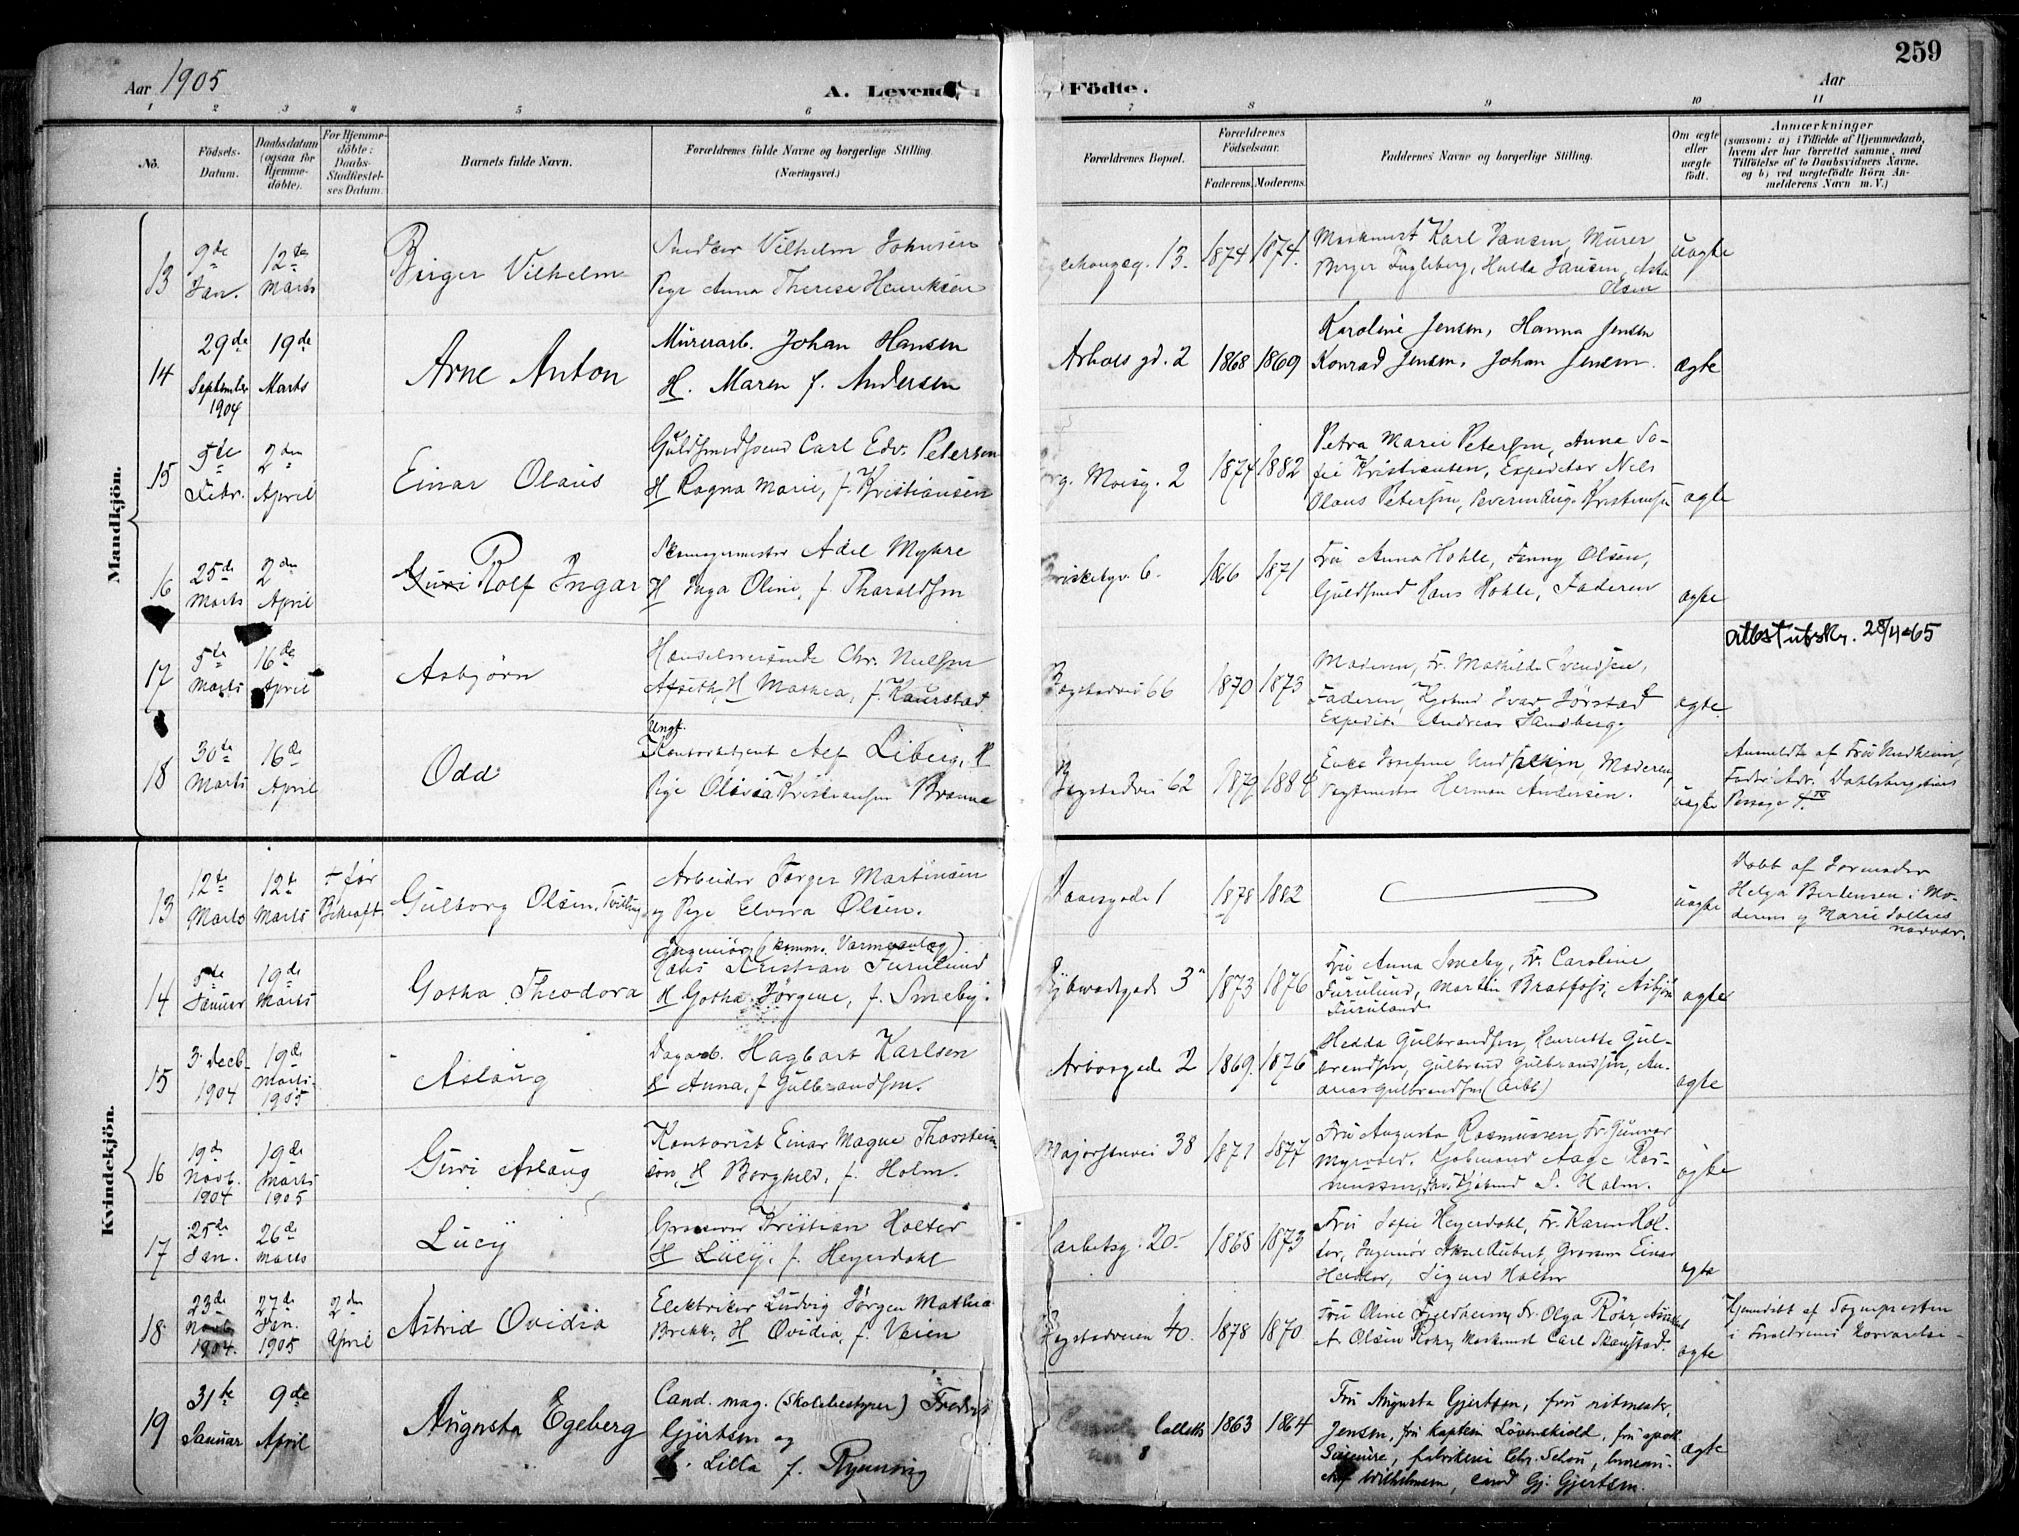 259
Aar 1905
A. Levende Födte.
Aar
1 2 3 4 5 6 7 8 9 10 11
No.
Födsels-
Datum.
Daabsdatum
(ogsaa for
Hjemme-
döbte).
For Hjemme-
döbte:
Daabs-
Stadfæstel-
ses Datum.
Barnets fulde Navn.
Forældrenes fulde Navne og borgerlige Stilling.
(Næringsvei.)
Forældrenes Bopæl.
Forældrenes
Födselsaar.
Faderens. Moderens.
Faddernes Navne og borgerlige Stilling.
Om ægte
eller
uægte
født.
Anmærkninger
(saasom: a) i Tilfælde af Hjemmedaab,
hvem der har forrettet samme, med
Tilföielse af to Daabsvidners Navne.
og b) ved uægtefödte Börn An-
melderens Navn m. V.)
Mandkjön.
13
9de
Jan.
12te
Marts
Birger Vilhelm
Snedker Vilhelm Johnsen
Pige Anna Therese Henriksen
13.
1874
1874
Maskinist Karl Jansen, Murer
Berger Fugleberg, Hulda Jansen,
Olsen
uægte
14
29de
September
1904
19de
Marts
Arne Anton
Murerarb. Johan Hansen
H. Maren f. Andersen
Arbos gd. 2
1868
1869
Karoline Jensen, Hanna Jensen
Konrad Jensen, Johan Jensen.
ægte
15
5te
Febr.
2den
April
Einar Olaus
Guldsmedsvend Carl Edv. Petersen
H Ragna Marie, f. Kristiansen
2
1874
1882
Petra Marie Petersen, Anna So-
fie Kristiansen, Expeditør Nils
Olaus Petersen, Kristiansen
ægte
16
25de
Marts
2den
April
Guri Rolf Ingar
Skomagermester Adel Myhre
H Inga Oline, f. Tharaldsen
Briskebyv. 6.
1866
1871
Fru Anna Hohle, Fanny Olsen,
Guldsmed Hans Hohle, Faderen
ægte
17
5te
Marts
16de
April
Asbjørn
Handelsreisende Chr. Nielsen
H Mathea, f. Kaurstad.
Bogstadvei 66
1870
1873
Moderen, Fr. Mathilde Svendsen,
Faderen, Kjøbmd Ivar Jørstad
Expedit. Andreas Sandberg.
ægte.
attest utskr. 28/4-65
18
30te
Marts
16de
April
Odd
Ungk.
Kontorbetjent Alf Liberg,
Pige Olivia Kristiansen
Bogstadvei 62
1879
1884
Josefine Moderen,
Herman Andersen.
uægte
Anmeldt af Fru
Passage 4 IV
Kvindekjön.
13
12te
Marts
12te
Marts
Gulborg Olsen. Tvilling
Arbeider Jørger Martinsen
og Pige Elvira Olsen.
1
1878
1882
uægte
Døbt af Jormoder
Helga Berntsen i Mo-
derens og Marie
nærvær.
14
5te
Januar
19de
Marts
Gotha Theodora
Ingeniør (komm. Varmeanlæg).
Hans Kristian Furulund
H Gotha Jørgine, f. Smeby.
3
1873
1876
Fru Anna Smeby, Fr. Caroline
Furulund, Martin Bratfoss, Asbjørn
Furulund
ægte
15
3 Decb.
1904
19de
Marts
1905
Aslaug
Dagarb. Hagbart Karlsen
H Anna, f Gulbrandsen.
Arbosgade 2
1869
1876
Hedda Gulbrandsen, Henriette Gul-
brandsen, Gulbrand Gulbrandsen, An-
dreas Gulbrandsen (Arbb)
ægte
16
19de
Novb.
1904
19de
Marts
1905
Guri Aslaug
Kontorist Einar Magne Thorstein-
sen, H Borghild, f. Holm.
Majorstuvei 38
1871
1877
Fru Augusta Rasmussen, Fr. Gunvor
Kjøbmand Aage Ras-
mussen, S. Holm.
ægte
17
25de
Jan.
26de
Marts
Lucy
Grosserer Kristian Holter
H Lucy, f. Heyerdahl
20.
1868
1873
Fru Sofie Heyerdahl, Fr. Karen Hol-
ter, Ingeniør Aubert, Grosserer Einar
Sigurd Holter
ægte
18.
23de
Novb.
1904.
27de
Jan.
1905
2den
April
Astrid Ovidia
Elektriker Ludvig Jørgen Mathias
Brekke, H Ovidia, f. Veien
Bogstadveien 40.
1878
1870
Fru Oline Fjeldheim, Fr. Olga Röhr,
A. Olsen Röhr, Carl Skaugstad.
ægte
Hjemdøbt af Sognepresten
i Forældrenes Nærværelse.
19
31te
Januar
9de
April
Augusta Egeberg
Cand. mag. (Skolebestyrer) Fredrik
Gjertsen og
H. Lilla f. Rynning
Colletts
8
1863
1864
Fru Augusta Gjertsen, fru ritmester
Jensen, fru kaptein Løvenskiold, fru
fabrikeier Chr. Schou,
Wilhelmsen, cand Gj. Gjertsen.
ægte